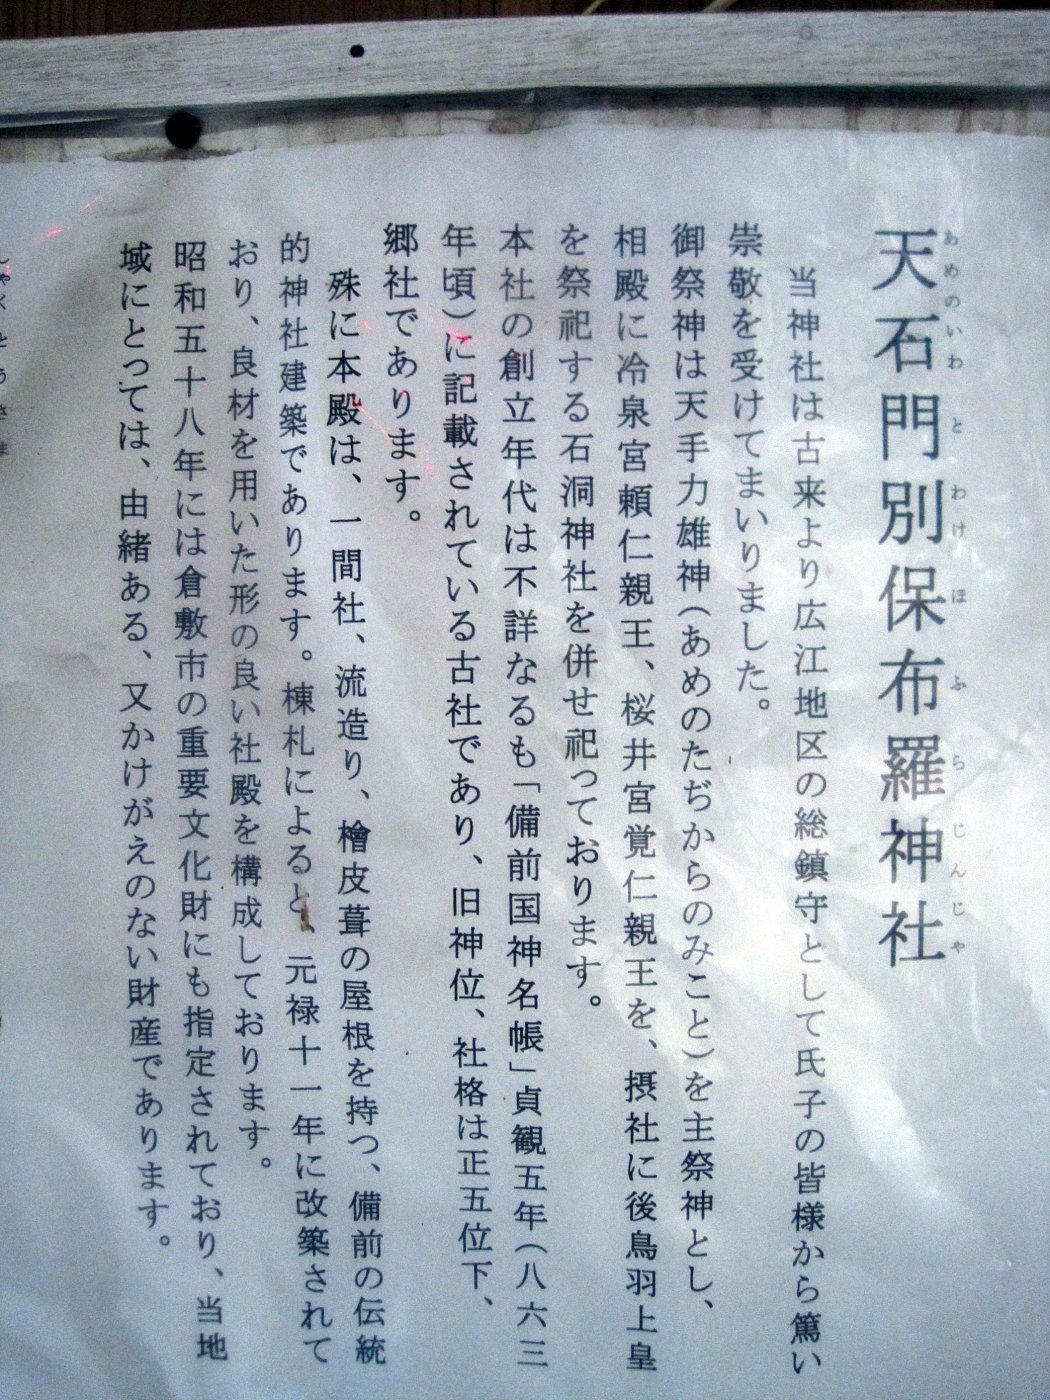 天石門別保布羅神社
あめのいわとわけほふらじんじゃ
当神社は古来より広江地区の総鎮守として氏子の皆様から篤い
崇敬を受けてまいりました。
御祭神は天手力雄神(あめのたぢからのみこと)を主祭神とし、
相殿に冷泉宮頼仁親王、桜井宮覚仁親王を、摂社に後鳥羽上皇
を祭祀する石洞神社を併せ祀っております。
本社の創立年代は不詳なるも「備前国神名帳」貞観五年(八六三
年頃)に記載されている古社であり、旧神位、社格は正五位下、
郷社であります。
殊に本殿は、一間社、流造り、檜皮葺の屋根を持つ、備前の伝統
的神社建築であります。棟札によると、元禄十一年に改築されて
おり、良材を用いた形の良い社殿を構成しております。
昭和五十八年には倉敷市の重要文化財にも指定されており、当地
域にとっては、由緒ある、又かけがえのない財産であります。